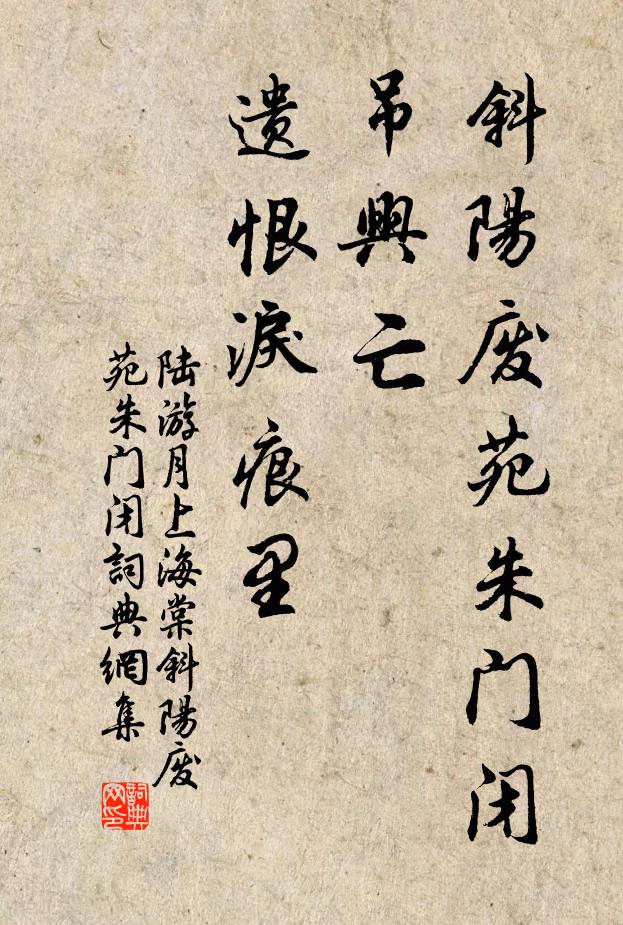 斜陽废苑朱门闭
吊興亡
遗恨淚痕里
陆游月上海棠斜陽废
苑朱门闭詞典網集
詞典网印